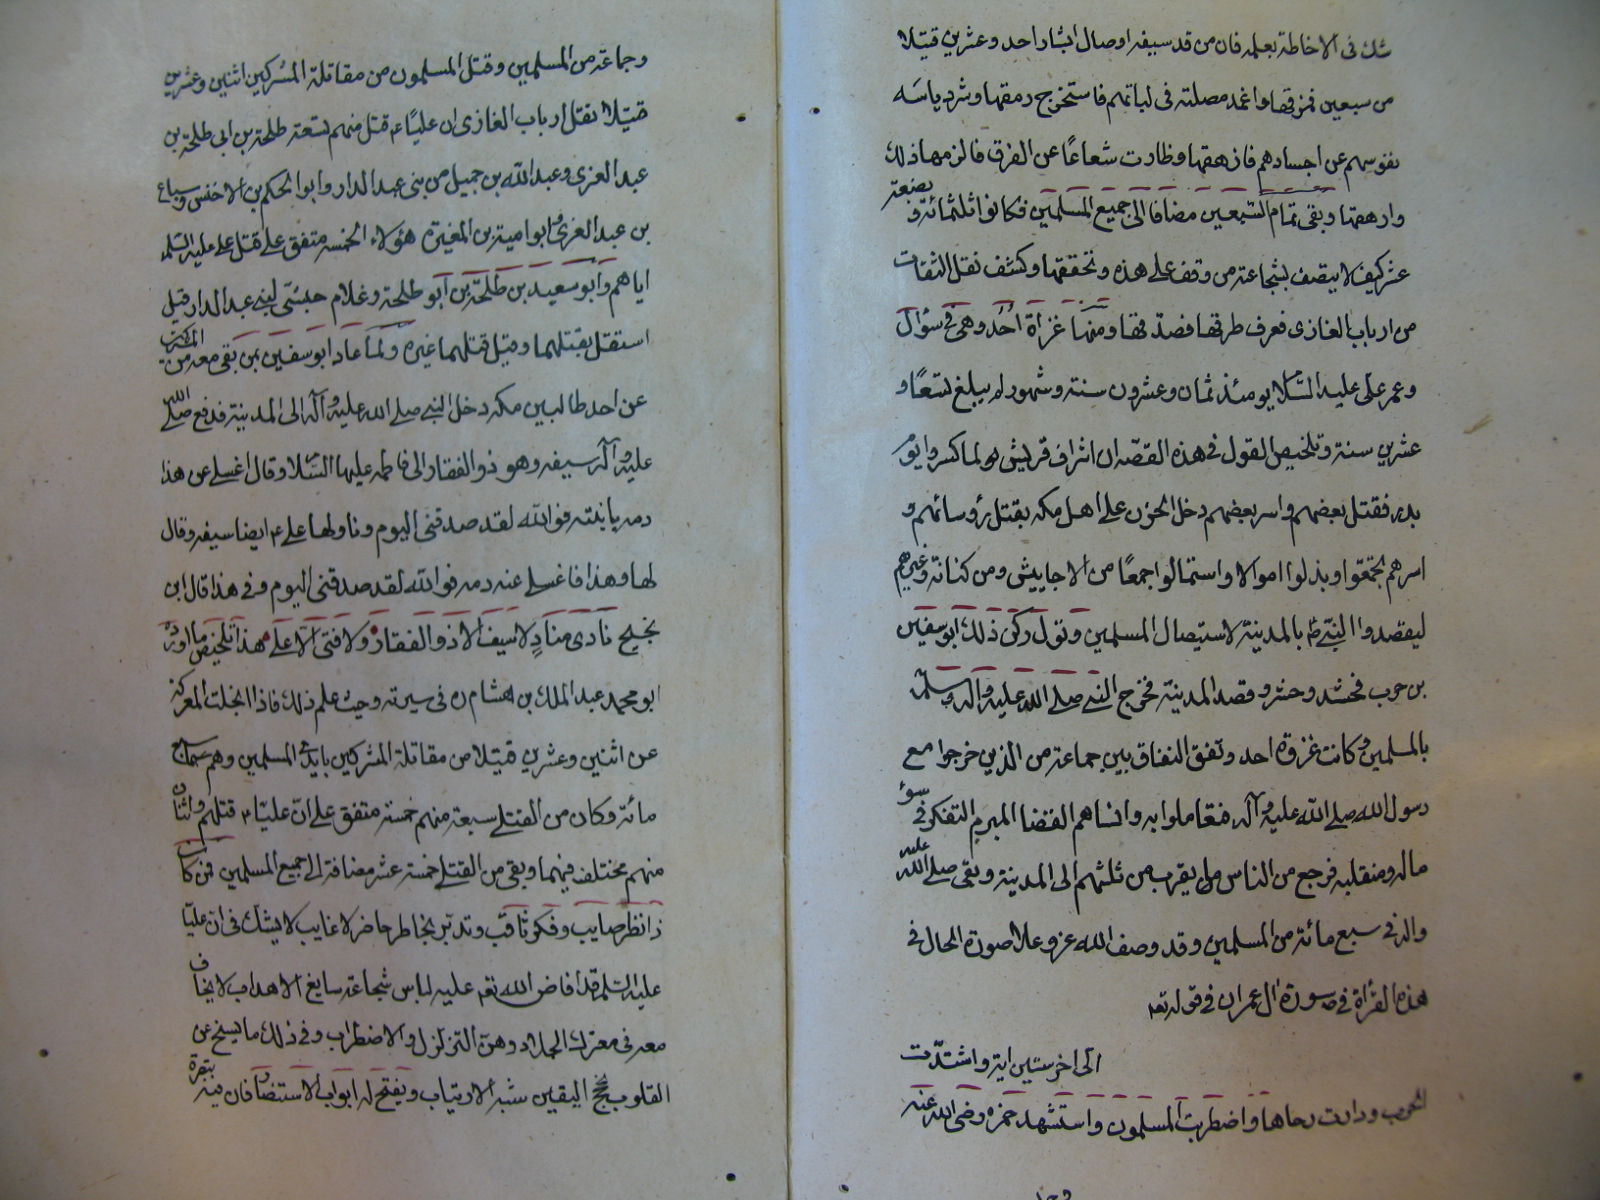 شك فى الاحاطة بعلمه فان من قد سيفه اوصال احد وعشرين قتيلا
من سبعين فمزقها واغمد مصلته فى لباتهم فاستخرج دمقها وشرد ياسه
نفوسهم عن اجسادهم فازهقها وطارت شعاعًا عن الفرق فالزمها ذلك
وارهقها وبقى تمام السبعين مضافا الى جميع المسلمين فكانوا ثلثمائة و بضعة
عشر كيف لا يتصف بشجاعته من وقف على هذه وتحققها وكشف نقل الثقات
من ارباب المغازى فعرف طرقها فصدقها ومنها غزاة احد وهى فى سؤال
وعمر على عليه السلام يومئذ ثمان وعشرون سنة وشهور لم يبلغ تسعًا و
عشرين سنة وتلخيص القول فى هذه القصه ان اشراف قريش لما كسروا يوم
بدر فقتل بعضهم واسر بعضهم دخل الحزن على اهل مكه بقتل رؤسائهم و
اسرهم فجتمعوا وبذلوا اموالا واستمالوا جمعًا من الاحابيش ومن كنانة وغيرهم
ليقصدوا النبى بالمدينة لاستيصال المسلمين وتولى ذلك ابو سفين
بن حرب فحشد وحشر وقصد المدينة فخرج النبى صلى الله عليه واله وسلم
بالمسلمين وكانت غزوة احد وتفق النفاق بين جماعة من الذين خرجوا مع
رسول الله صلى الله عليه وآله فتعاملوا به وانساهم القضا المبرم التفكر فى سوء
ماله ومنقلبه فرجع من الناس ما يقرب من ثلثهم الى المدينة وبقى صلى الله عليه
واله فى سبع مائة من المسلمين وقد وصف الله عز وعلا صورة الحال فى
هذه الغزاة فى سورة ال عمران فى قوله تعه
الى اخر ستين اية واشتدت
الحرب ودارت رحاها واضطربت المسلمون واستشهد حمزه رضى الله عنه
وجماعة من المسلمين وقتل المسلمون من مقاتلة المشركين اثنين وعشرين
قتيلا نقل ارباب المغازى ان عليًا قتل منهم تسعة طلحة بن ابى طلحة بن
عبد العزى وعبد الله بن جميل من بنى عبد الدار وابو الحكم بن الاخنس وسباع
بن عبد العزى وابو امية بن المغيرة هؤلاء الخمسه متفق على قتل على عليه السلم
اياهم وابو سعيد بن طلحة بن ابو طلحة وغلام حبشى لبنى عبد الدار قيل
استقل بقتلهما وقيل قتلهما غيره ولما عاد ابو سفين بمن بقى معه من المشركين
عن احد طالبين مكه دخل النبى صلى الله عليه وآله الى المدينة فدفع صلى الله
عليه وآله سيفه وهو ذو الفقار الى فاطمه عليها السلام وقال اغسلى عن هذا
دمه يا بنته فوالله لقد صدقنى اليوم وناولها على ايضا سيفه وقال
لها وهذا فاغسلى عنه دمه فوالله لقد صدقنى اليوم وفى هذا قال ابن
نجيح نادى منادٍ لا سيف الا ذو الفقار ولا فتى الا على هذا تلخيص ما اورده
ابو محمد عبد الملك بن هشام فى سيرته وحيث علم ذلك فاذا انجلت المعركة
عن اثنين وعشرين قتيلا من مقاتلة المشركين بايدى المسلمين وهم سبع
مائة وكان من القتلى سبعة منهم خمسة متفق على ان عليًا قتلهم واثنان
منهم مختلف فيهما وبقى من القتلى خمسة عشر مضافة الى جميع المسلمين فمن كان
ذا نظر صايب وفكر ثاقب وتدبر بخاطر حاضر لا غايب لا يشك فى ان عليًا
عليه السلم قد افاض الله تعه عليه لباس شجاعة سابغ الاهداب لا يخاف
معه فى معترك الجلاد وهن التزلزل والاضطراب وفى ذلك ما ينسخ عن
القلوب بحجج اليقين شبه الارتياب ويفتح له ابواب الاستنصا فان فيه بتقرة